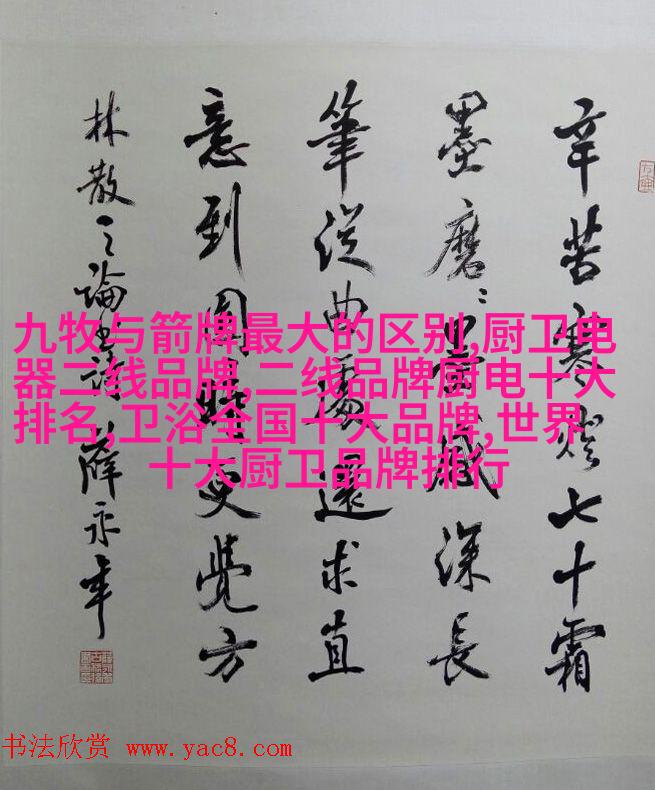 辛苦寒燈七十霜
墨磨〻墨感深長
筆從曲處還求直
意到圓時更覺方
林散之論書詩 薛永年
九牧与箭牌最大的区别,厨卫电
器二线品牌,二线品牌厨电十大
排名,卫浴全国十大品牌,世界
十大厨卫品牌排行
书法欣赏 www.yac8.com